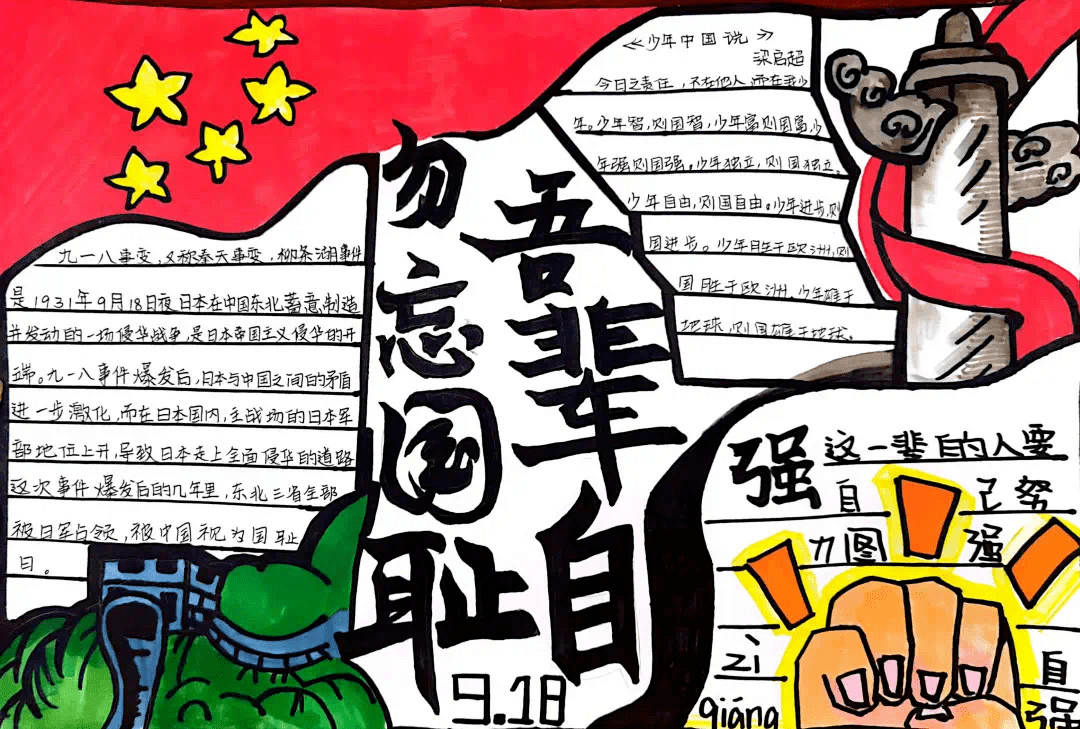 九一八事变，又称奉天事变，柳条湖事件
是1931年9月18日夜日本在中国东北蓄意制造
并发动的一场侵华战争，是日本帝国主义侵华的开
端。九一八事件爆发后，日本与中国之间的矛盾
进一步激化，而在日本国内，主战场的日本军
部地位上升，导致日本走上全面侵华的道路
这次事件爆发后的几年里，东北三省全部
被日军占领，被中国视为国耻
日。
勿忘国耻
吾辈自强
9.18
《少年中国说》
梁启超
今日之责任，不在他人，而在我少
年。少年智，则国智，少年富则国富，少
年强则国强。少年独立，则国独立。
少年自由，则国自由。少年进步，则
国进步。少年胜于欧洲，则
国胜于欧洲，少年雄于
地球，则国雄于地球。
这一辈自的人要
自己努
力图强
zì
自
qiáng
强